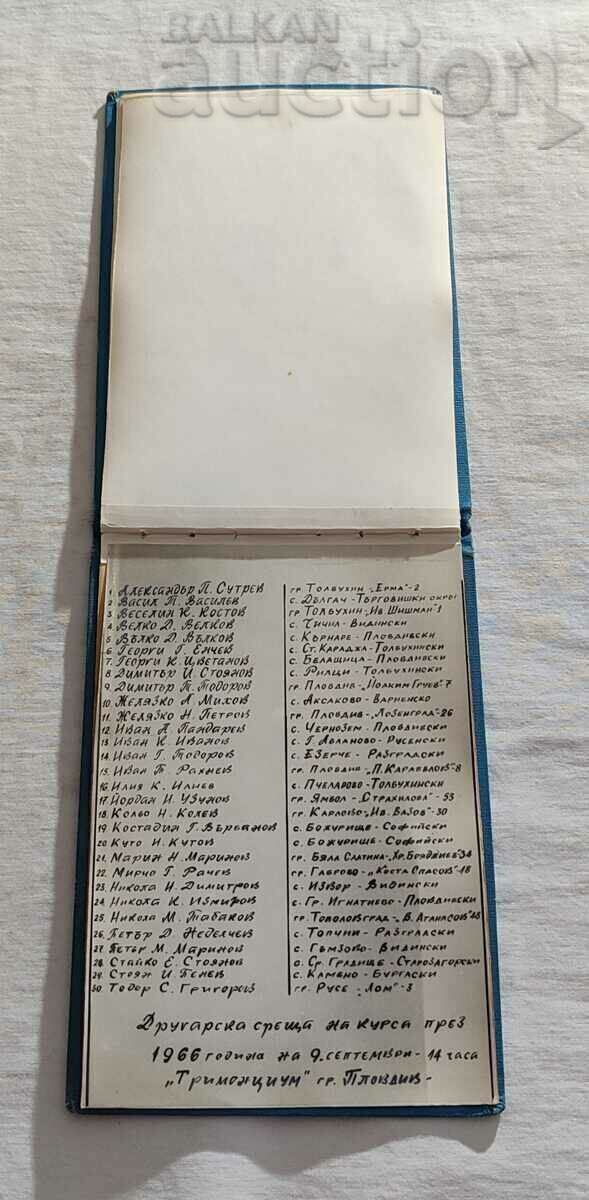 BALKAN
auction
1 Александър П. Сутрев гр. Толбухин „Ерма"-2
2 Васил Т. Василев с. Дългач-Търговишки окръг
3 Веселин К. Костов гр. Толбухин „Ив. Шишман" 1
4 Велко Д. Велков с. Чичил-Видински
5 Вълко Д. Вълков с. Кърнаре-Пловдивски
6 Георги Г. Енчев с. Ст. Караджа-Толбухински
7. Георги К. Цветанов с. Белащица-Пловдивски
8 Димитър И. Стоянов с. Рилци-Толбухински
9. Димитър П. Тодоров гр. Пловдив „Йоаким Груев"-7
10. Желязко А. Михов с. Аксаково-Варненско
11. Желязко Н. Петров гр. Пловдив-„Лозенград"-26
12 Иван А. Пандаров с. Чернозем-Пловдивски
13 Иван К. Иванов с. Г. Абланово-Русенски
14. Иван Г. Тодоров с. Езерче-Разградски
15. Иван Т. Рахнев гр. Пловдив „Л. Каравелов"-8
16. Илия К. Илиев с. Пчеларово-Толбухински
17. Йордан И. Узунов гр. Ямбол-„Страхилова"-53
18. Кольо Н. Колев гр. Карлово „Ив. Вазов"-30
19. Костадин Г. Върбанов с. Божурище-Софийски
20 Куто И. Кутов с. Божурище-Софийски
21. Марин Н. Маринов гр. Бяла Слатина-„Хр. Бояджиев" 34
22 Мирчо Г. Рачев гр. Габрово-„Коста Спасов"-18
23. Никола И. Димитров с. Извор-Видински
24. Никола К. Измиров с. Гр. Игнатиево-Пловдивски
25. Никола М. Табаков гр. Тополовград-„В. Атанасов" 48
26 Петър Д. Неделчев с. Топчии-Разградски
27 Петър М. Маринов с. Гъмзово-Видински
28. Стайко Е. Стоянов с. Ср. Градище-Старозагорски
29. Стоян И. Пенев с. Камено-Бургаски
30 Тодор С. Григоров гр. Русе-„Лом"-3
Другарска среща на курса през
1966 година на 9. септември-14 часа
„Тримонциум" гр. Пловдив-